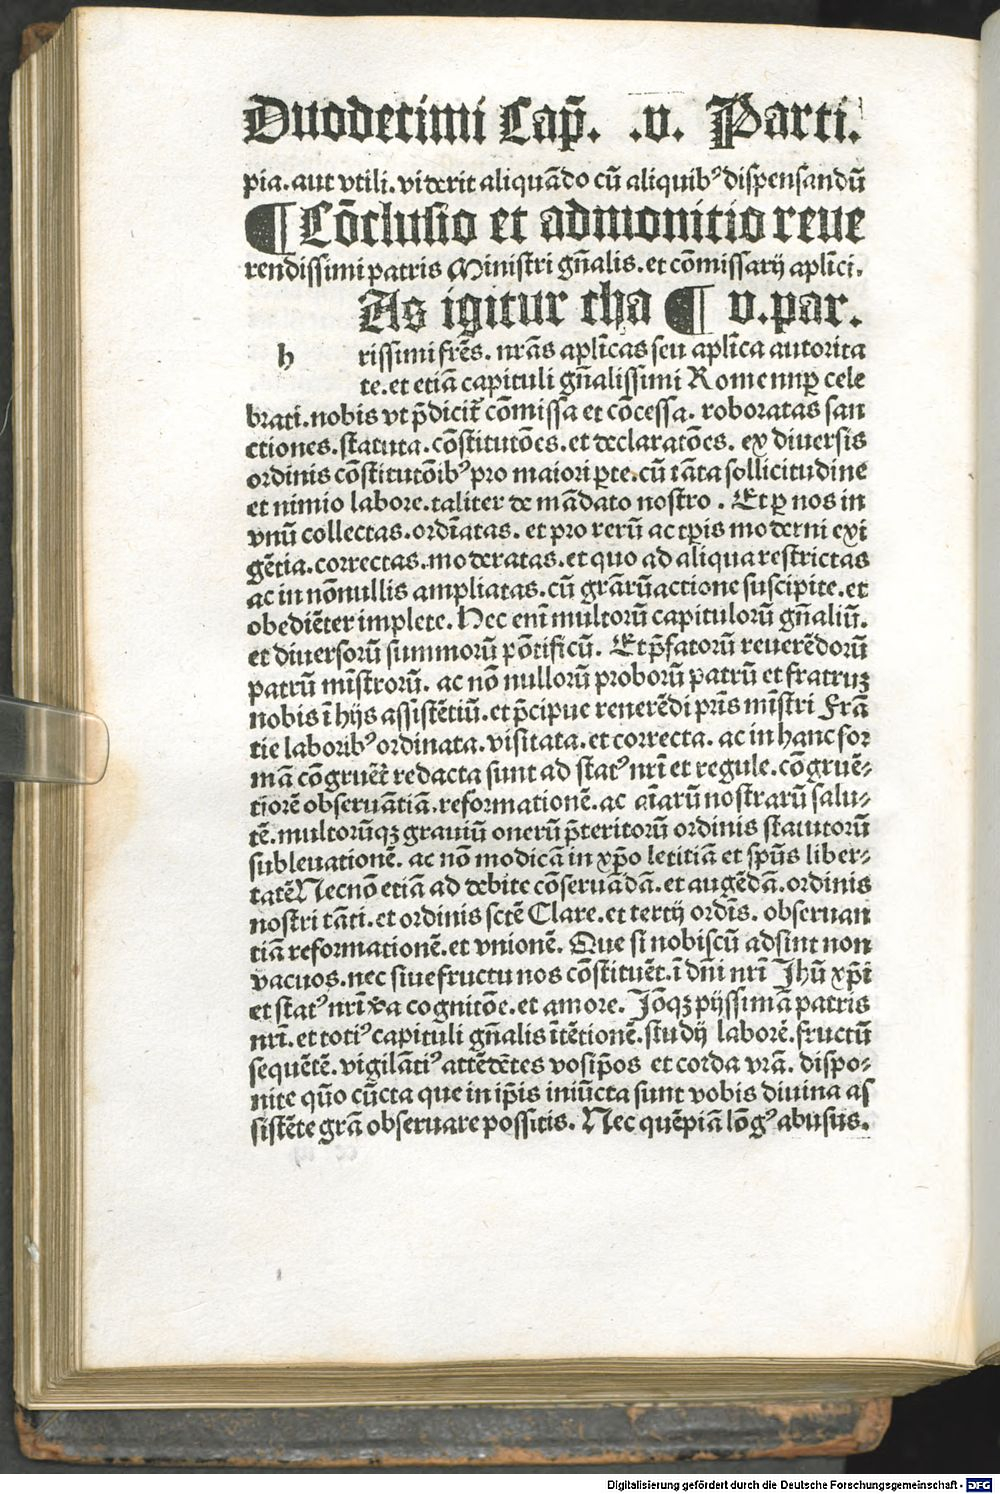 Duodecimi Cap̄. .v. Parti.
pia.aut vtili.viderit aliquādo cū aliquibꝰ dispensandū
¶ Cōclusio et admonitio reue
rendissimi patris Ministri gn̄alis.et cōmissarij aplīci.
As igitur cha ¶ v.par.
h rissimi frēs. nrās aplīcas seu aplīca autorita
te.et etiā capituli gn̄alissimi Rome nuꝑ cele
brati.nobis vt p̄dicit᷑ cōmissa et cōcessa. roboratas san
ctiones.statuta.cōstitutōes.et declaratōes. ex diuersis
ordinis cōstitutōibꝰ pro maiori ꝑte.cū tāta sollicitudine
et nimio labore.taliter de mādato nostro . Et ꝑ nos in
vnū collectas.ordīatas. et pro rerū ac tꝑis moderni exi
gētia.correctas.moderatas.et quo ad aliqua restrictas
ac in nōnullis ampliatas.cū grāꝝ actione suscipite.et
obediēter implete. Nec enī multorū capitulorū gn̄aliū.
et diuersorū summorū pōtificū. Et p̄fatorū reuerēdorū
patrū mīstrorū. ac nō nullorū proborū patrū et fratruꝫ
nobis ī hijs assistētiū.et p̄cipue reuerēdi pr̄is mīstri Frā
cie laboribꝰ ordinata.visitata.et correcta. ac in hanc for
mā cōgruēt᷑ redacta sunt ad statꝰ nr̄i et regule.cōgruē⸗
tiorē obseruātiā.reformationē.ac aīarū nostrarū salu⸗
tē.multorūqꝫ grauiū onerū p̄teritorū ordinis statutorū
subleuationē. ac nō modicā in xp̄o letitiā et spūs liber⸗
tatē Necnō etiā ad debite cōseruādā.et augēdā.ordinis
nostri tāti.et ordinis sctē Clare.et tertij ordīs. obseruan
tiā reformationē.et vnionē. Que si nobiscū adsint non
vacuos.nec siue fructu nos cōstituēt.ī dn̄i nr̄i Jhū xp̄i
et statꝰ nr̄i ꝟa cognitōe.et amore. Jōqꝫ pijssimā patris
nr̄i.et totiꝰ capituli gn̄alis ītētionē.studij laborē.fructū
sequētē.vigilātiꝰ attēdētes vosip̄os et corda vr̄a. dispo⸗
nite quo cūcta que in ip̄is iniūcta sunt vobis diuina as
sistēte grā obseruare possitis. Nec quēpiā lōgꝰ abusus.
Digitalisierung gefördert durch die Deutsche Forschungsgemeinschaft - DFG